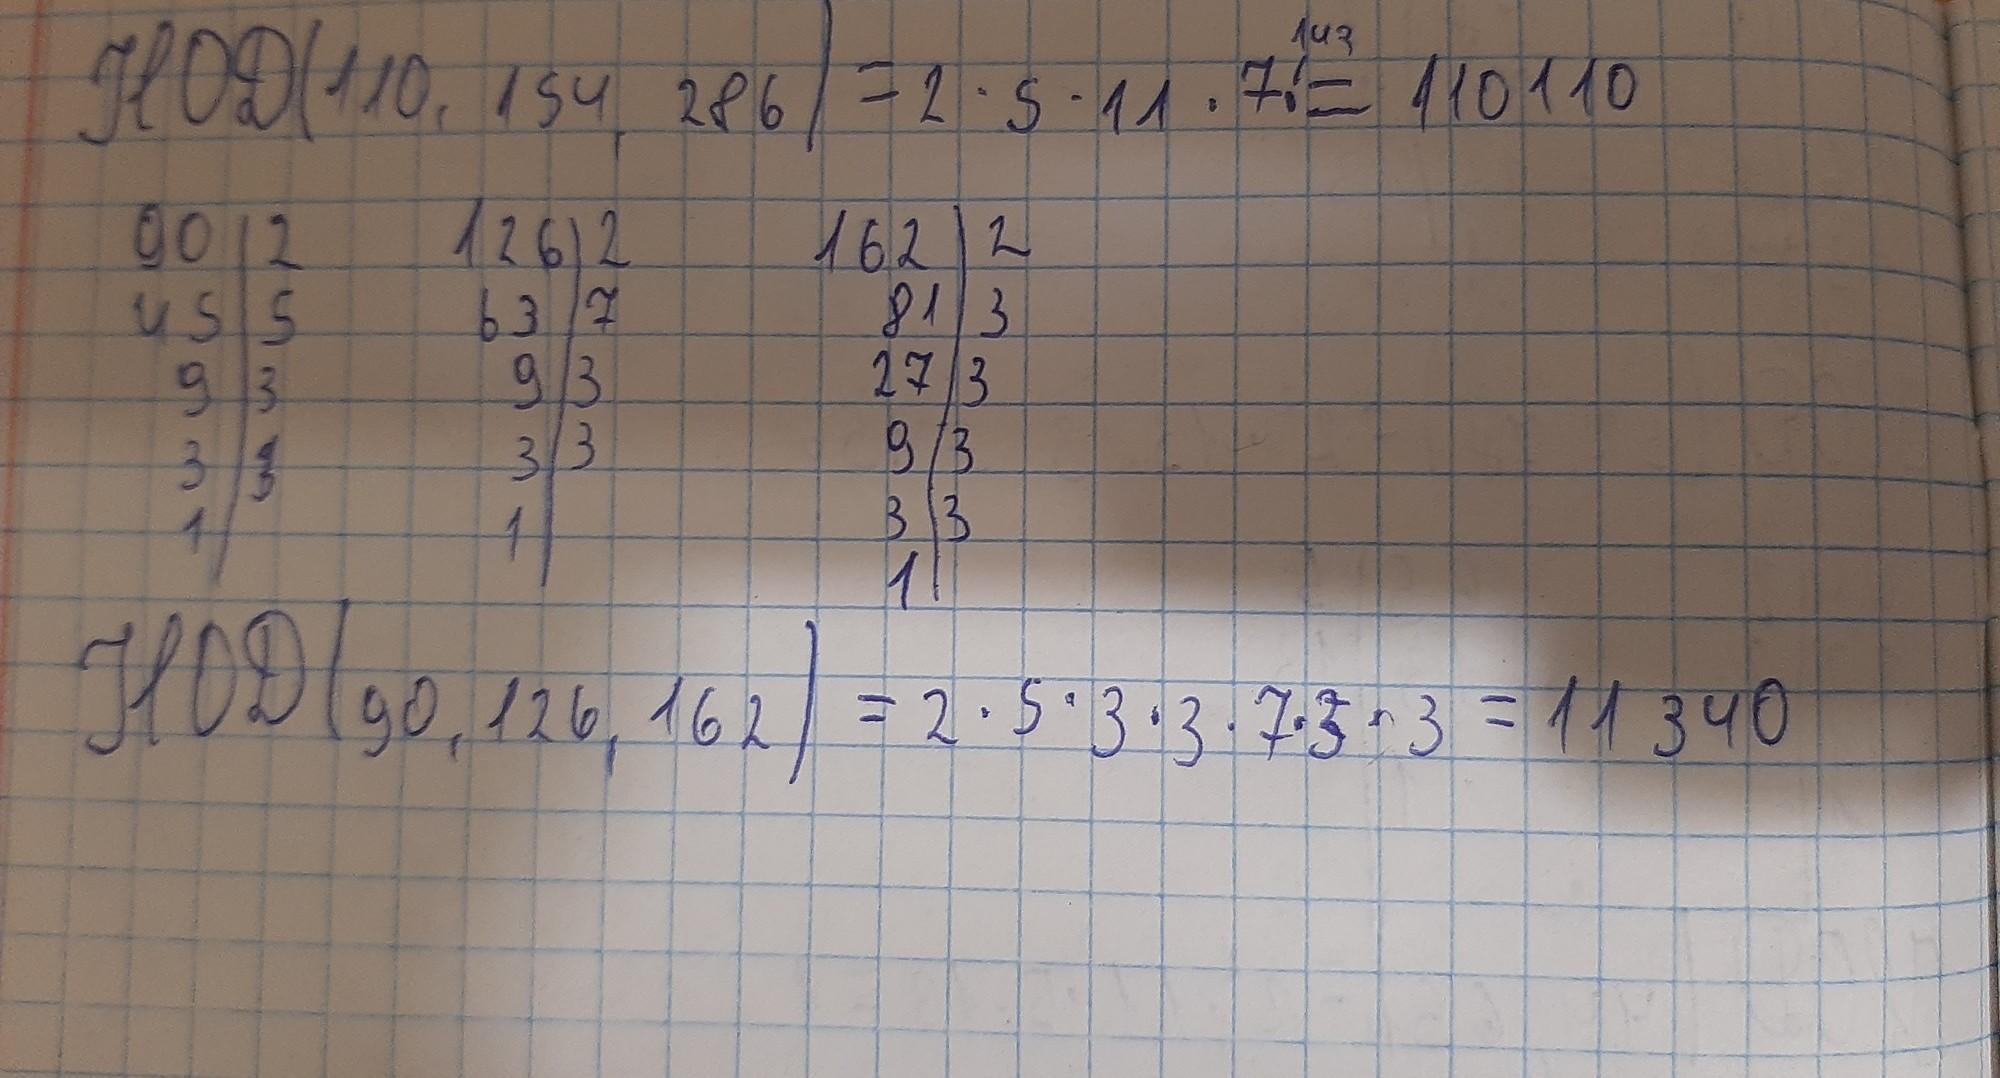 НОД(110, 154, 286) = 2 · 5 · 11 · 7 · 143 = 110110
90 | 2 126 | 2 162 | 2
45 | 5 63 | 7 81 | 3
9 | 3 9 | 3 27 | 3
3 | 3 3 | 3 9 | 3
1 | 1 | 3 | 3
1 |
НОД(90, 126, 162) = 2 · 5 · 3 · 3 · 7 · 3 · 3 = 11 340